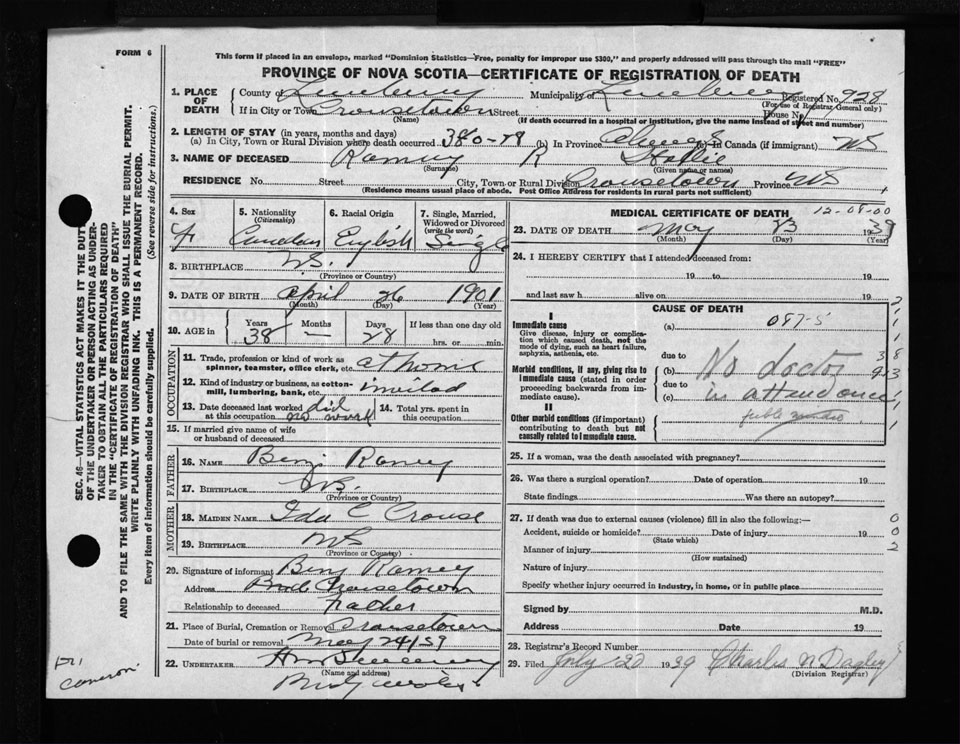 FORM 6
This form if placed in an envelope, marked "Dominion Statistics—Free, penalty for improper use $300," and properly addressed will pass through the mail "FREE"
PROVINCE OF NOVA SCOTIA—CERTIFICATE OF REGISTRATION OF DEATH
1. PLACE OF DEATH
County of Lunenburg Municipality of Lunenburg Registered No. 928
(For use of Registrar General only)
If in City or Town Crousetown Street House No.
(Name) (If death occurred in a hospital or institution, give the name instead of street and number)
2. LENGTH OF STAY (in years, months and days)
(a) In City, Town or Rural Division where death occurred 38-0-28 (b) In Province Always (c) In Canada (if immigrant) NS
3. NAME OF DECEASED Ramey R Hollie
(Surname) (Given name or names)
RESIDENCE No. Street City, Town or Rural Division Crousetown Province NS
(Residence means usual place of abode. Post Office Address for residents in rural parts not sufficient)
4. Sex F
5. Nationality (Citizenship) Canadian
6. Racial Origin English
7. Single, Married, Widowed or Divorced (write the word) Single
8. BIRTHPLACE NS.
(Province or Country)
9. DATE OF BIRTH April 26 1901
(Month) (Day) (Year)
10. AGE in Years 38 Months — Days 28 If less than one day old
hrs. or min.
OCCUPATION
11. Trade, profession or kind of work as spinner, teamster, office clerk, etc. at home
12. Kind of industry or business, as cotton-mill, lumbering, bank, etc. invilad
13. Date deceased last worked at this occupation did no work
14. Total yrs. spent in this occupation
15. If married give name of wife or husband of deceased
FATHER
16. NAME Benj Ramey
17. BIRTHPLACE
(Province or Country)
MOTHER
18. MAIDEN NAME Ida C Crouse
19. BIRTHPLACE NS
(Province or Country)
20. Signature of informant Benj Ramey
Address Crousetown
Relationship to deceased Father
21. Place of Burial, Cremation or Removal Crousetown
Date of burial or removal May 24/39
22. UNDERTAKER Sweeney
(Name and address)
Bridgewater
MEDICAL CERTIFICATE OF DEATH
12-08-00
23. DATE OF DEATH May 23 1939
(Month) (Day) (Year)
24. I HEREBY CERTIFY that I attended deceased from:
19 to 19
and last saw h alive on 19
CAUSE OF DEATH
I
Immediate cause
Give disease, injury or complication which caused death, not the mode of dying, such as heart failure, asphyxia, asthenia, etc.
Morbid conditions, if any, giving rise to immediate cause (stated in order proceeding backwards from immediate cause).
II
Other morbid conditions (if important) contributing to death but not causally related to immediate cause.
(a)
due to
(b) No doctor
due to
(c) in attendance
25. If a woman, was the death associated with pregnancy?
26. Was there a surgical operation? Date of operation 19
State findings Was there an autopsy?
27. If death was due to external causes (violence) fill in also the following:—
Accident, suicide or homicide? Date of injury 19
(State which)
Manner of injury
(How sustained)
Nature of injury
Specify whether injury occurred in industry, in home, or in public place
Signed by M.D.
Address Date 19
28. Registrar's Record Number
29. Filed July 20 1939 Charles N Dagley
(Division Registrar)
SEC. 46—VITAL STATISTICS ACT MAKES IT THE DUTY
OF THE UNDERTAKER OR PERSON ACTING AS UNDER-
TAKER TO OBTAIN ALL THE PARTICULARS REQUIRED
IN THE "CERTIFICATE OF REGISTRATION OF DEATH"
AND TO FILE THE SAME WITH THE DIVISION REGISTRAR WHO SHALL ISSUE THE BURIAL PERMIT.
WRITE PLAINLY WITH UNFADING INK. THIS IS A PERMANENT RECORD.
Every item of information should be carefully supplied. (See reverse side for instructions.)
Cameron